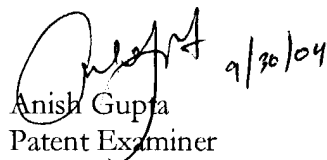 9/30/04
Anish Gupta
Patent Examiner